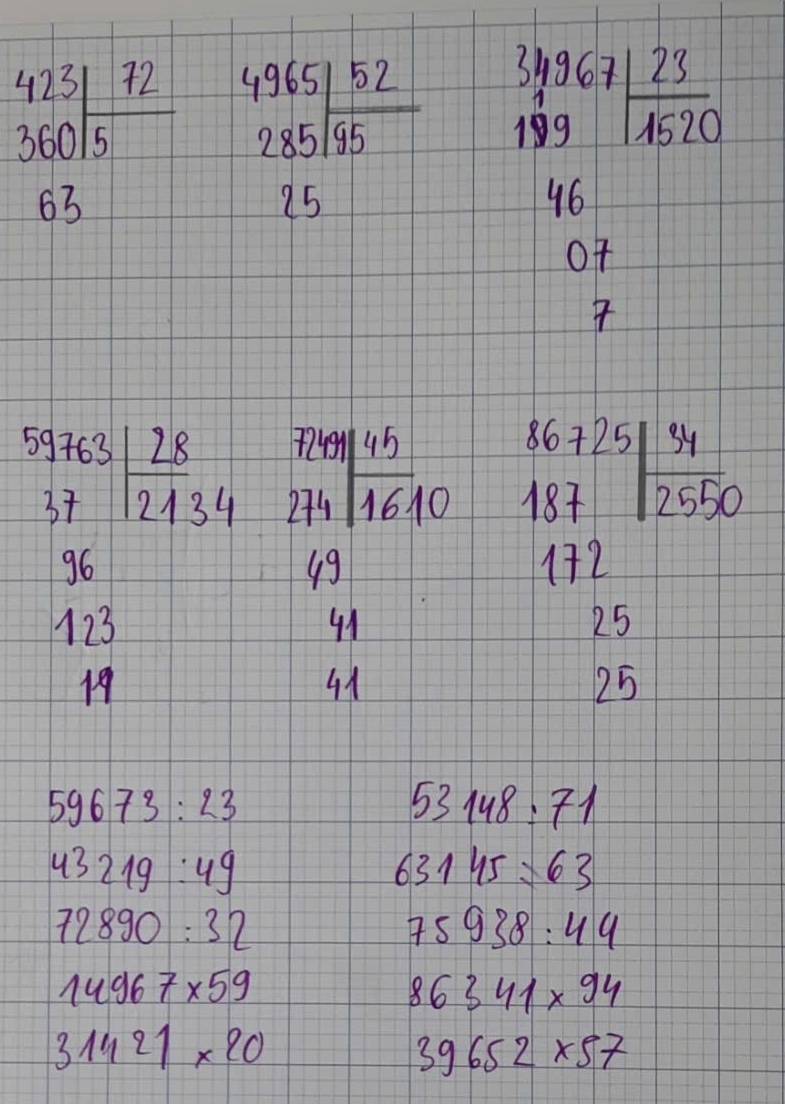 423 72
360 5
63
4965 52
285 95
25
34967 23
199 1520
46
07
7
59763 28
37 2134
96
123
19
72491 45
274 1610
49
41
41
86725 34
187 2550
172
25
25
59673 : 23
43219 : 49
72890 : 32
14967 x 59
31421 x 20
53148 : 71
63145 : 63
75938 : 44
86341 x 94
39652 x 57